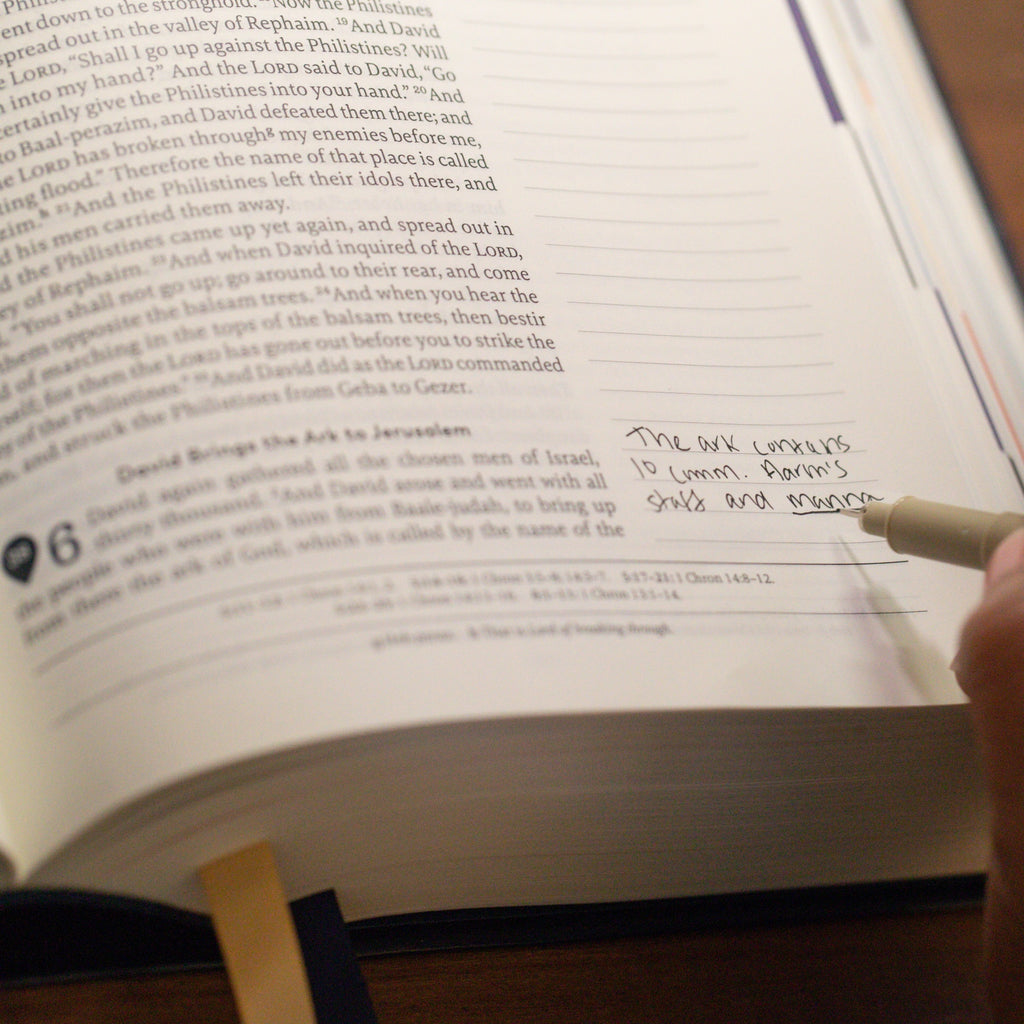 ent down to the stronghold. Now the Philistines
spread out in the valley of Rephaim. 19 And David
LORD, “Shall I go up against the Philistines? Will
into my hand?” And the LORD said to David, “Go
certainly give the Philistines into your hand.” 20 And
to Baal-perazim, and David defeated them there; and
LORD has broken through g my enemies before me,
ing flood.” Therefore the name of that place is called
zim. h 21 And the Philistines left their idols there, and
his men carried them away.
the Philistines came up yet again, and spread out in
ey of Rephaim. 23 And when David inquired of the LORD,
“You shall not go up; go around to their rear, and come
them opposite the balsam trees. 24 And when you hear the
d of marching in the tops of the balsam trees, then bestir
self, for then the LORD has gone out before you to strike the
y of the Philistines.” 25 And David did as the LORD commanded
and struck the Philistines from Geba to Gezer.
David Brings the Ark to Jerusalem
6 David again gathered all the chosen men of Israel,
thirty thousand. 2 And David arose and went with all
the people who were with him from Baale-judah, to bring up
from there the ark of God, which is called by the name of the
The ark contans
10 Comm. Aaron's
staff and manna
5:17–21: 1 Chron 14:8–12.
h That is Lord of breaking through.